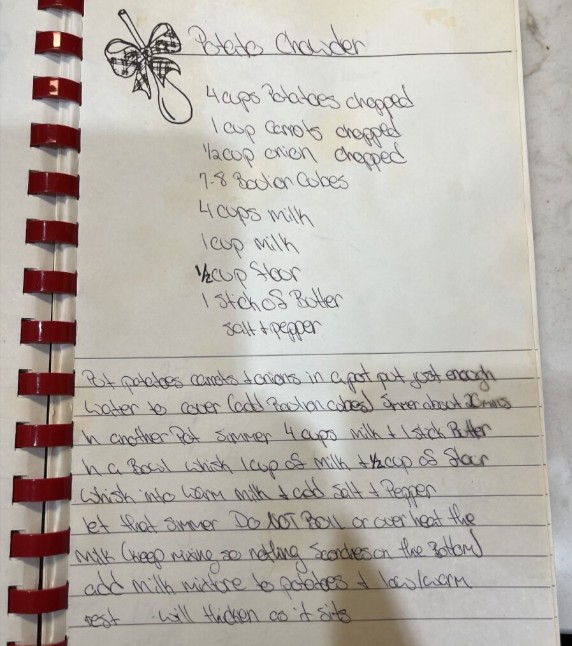 Potato Chowder
4 cups Potatoes chopped
1 cup carrots chopped
1/2 cup onion chopped
7-8 Boulion Cubes
4 cups milk
1 cup milk
1/2 cup flour
1 stick of Butter
salt + pepper
Put potatoes carrots + onions in a pot put just enough
water to cover (add Boulion cubes) Simmer about 20 mins
In another Pot Simmer 4 cups milk + 1 stick Butter
In a Bowl whisk 1 cup of milk + 1/2 cup of flour
Whisk into warm milk + add Salt + Pepper
let that simmer Do NOT Boil or over heat the
milk (keep mixing so nothing Scorches on the Bottom)
add milk mixture to potatoes + low/warm
rest . will thicken as it sits